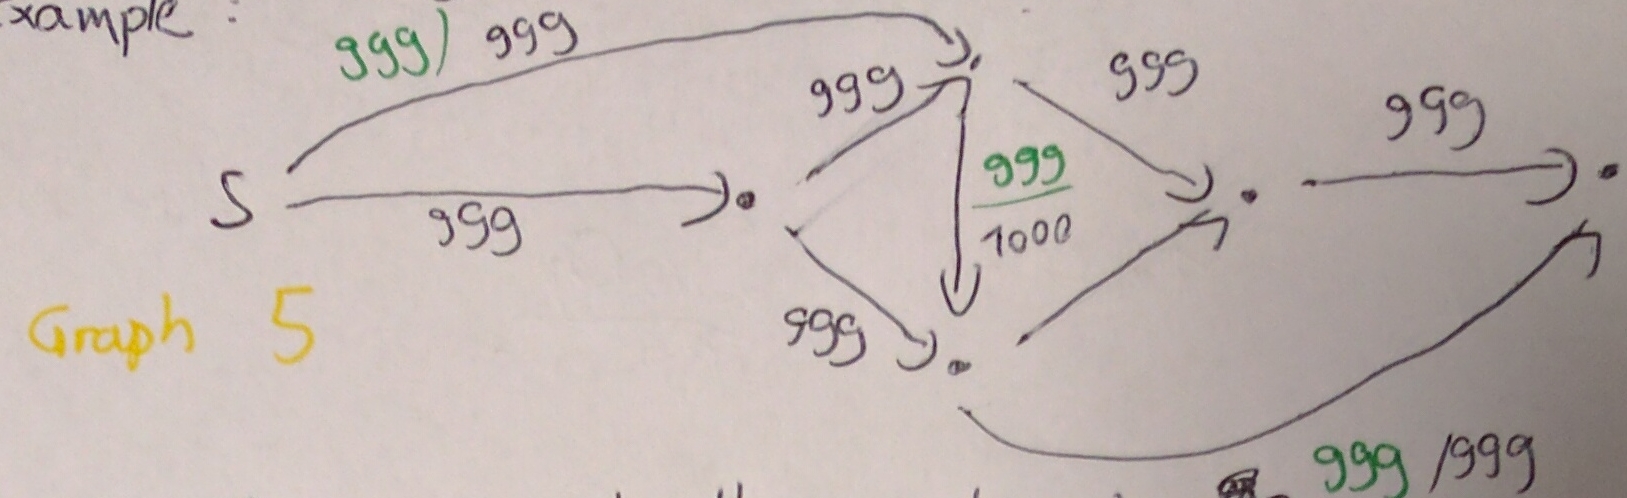 Example :
999) 999
999
999
999
999
999
1000
999
Graph 5
999
999 /999